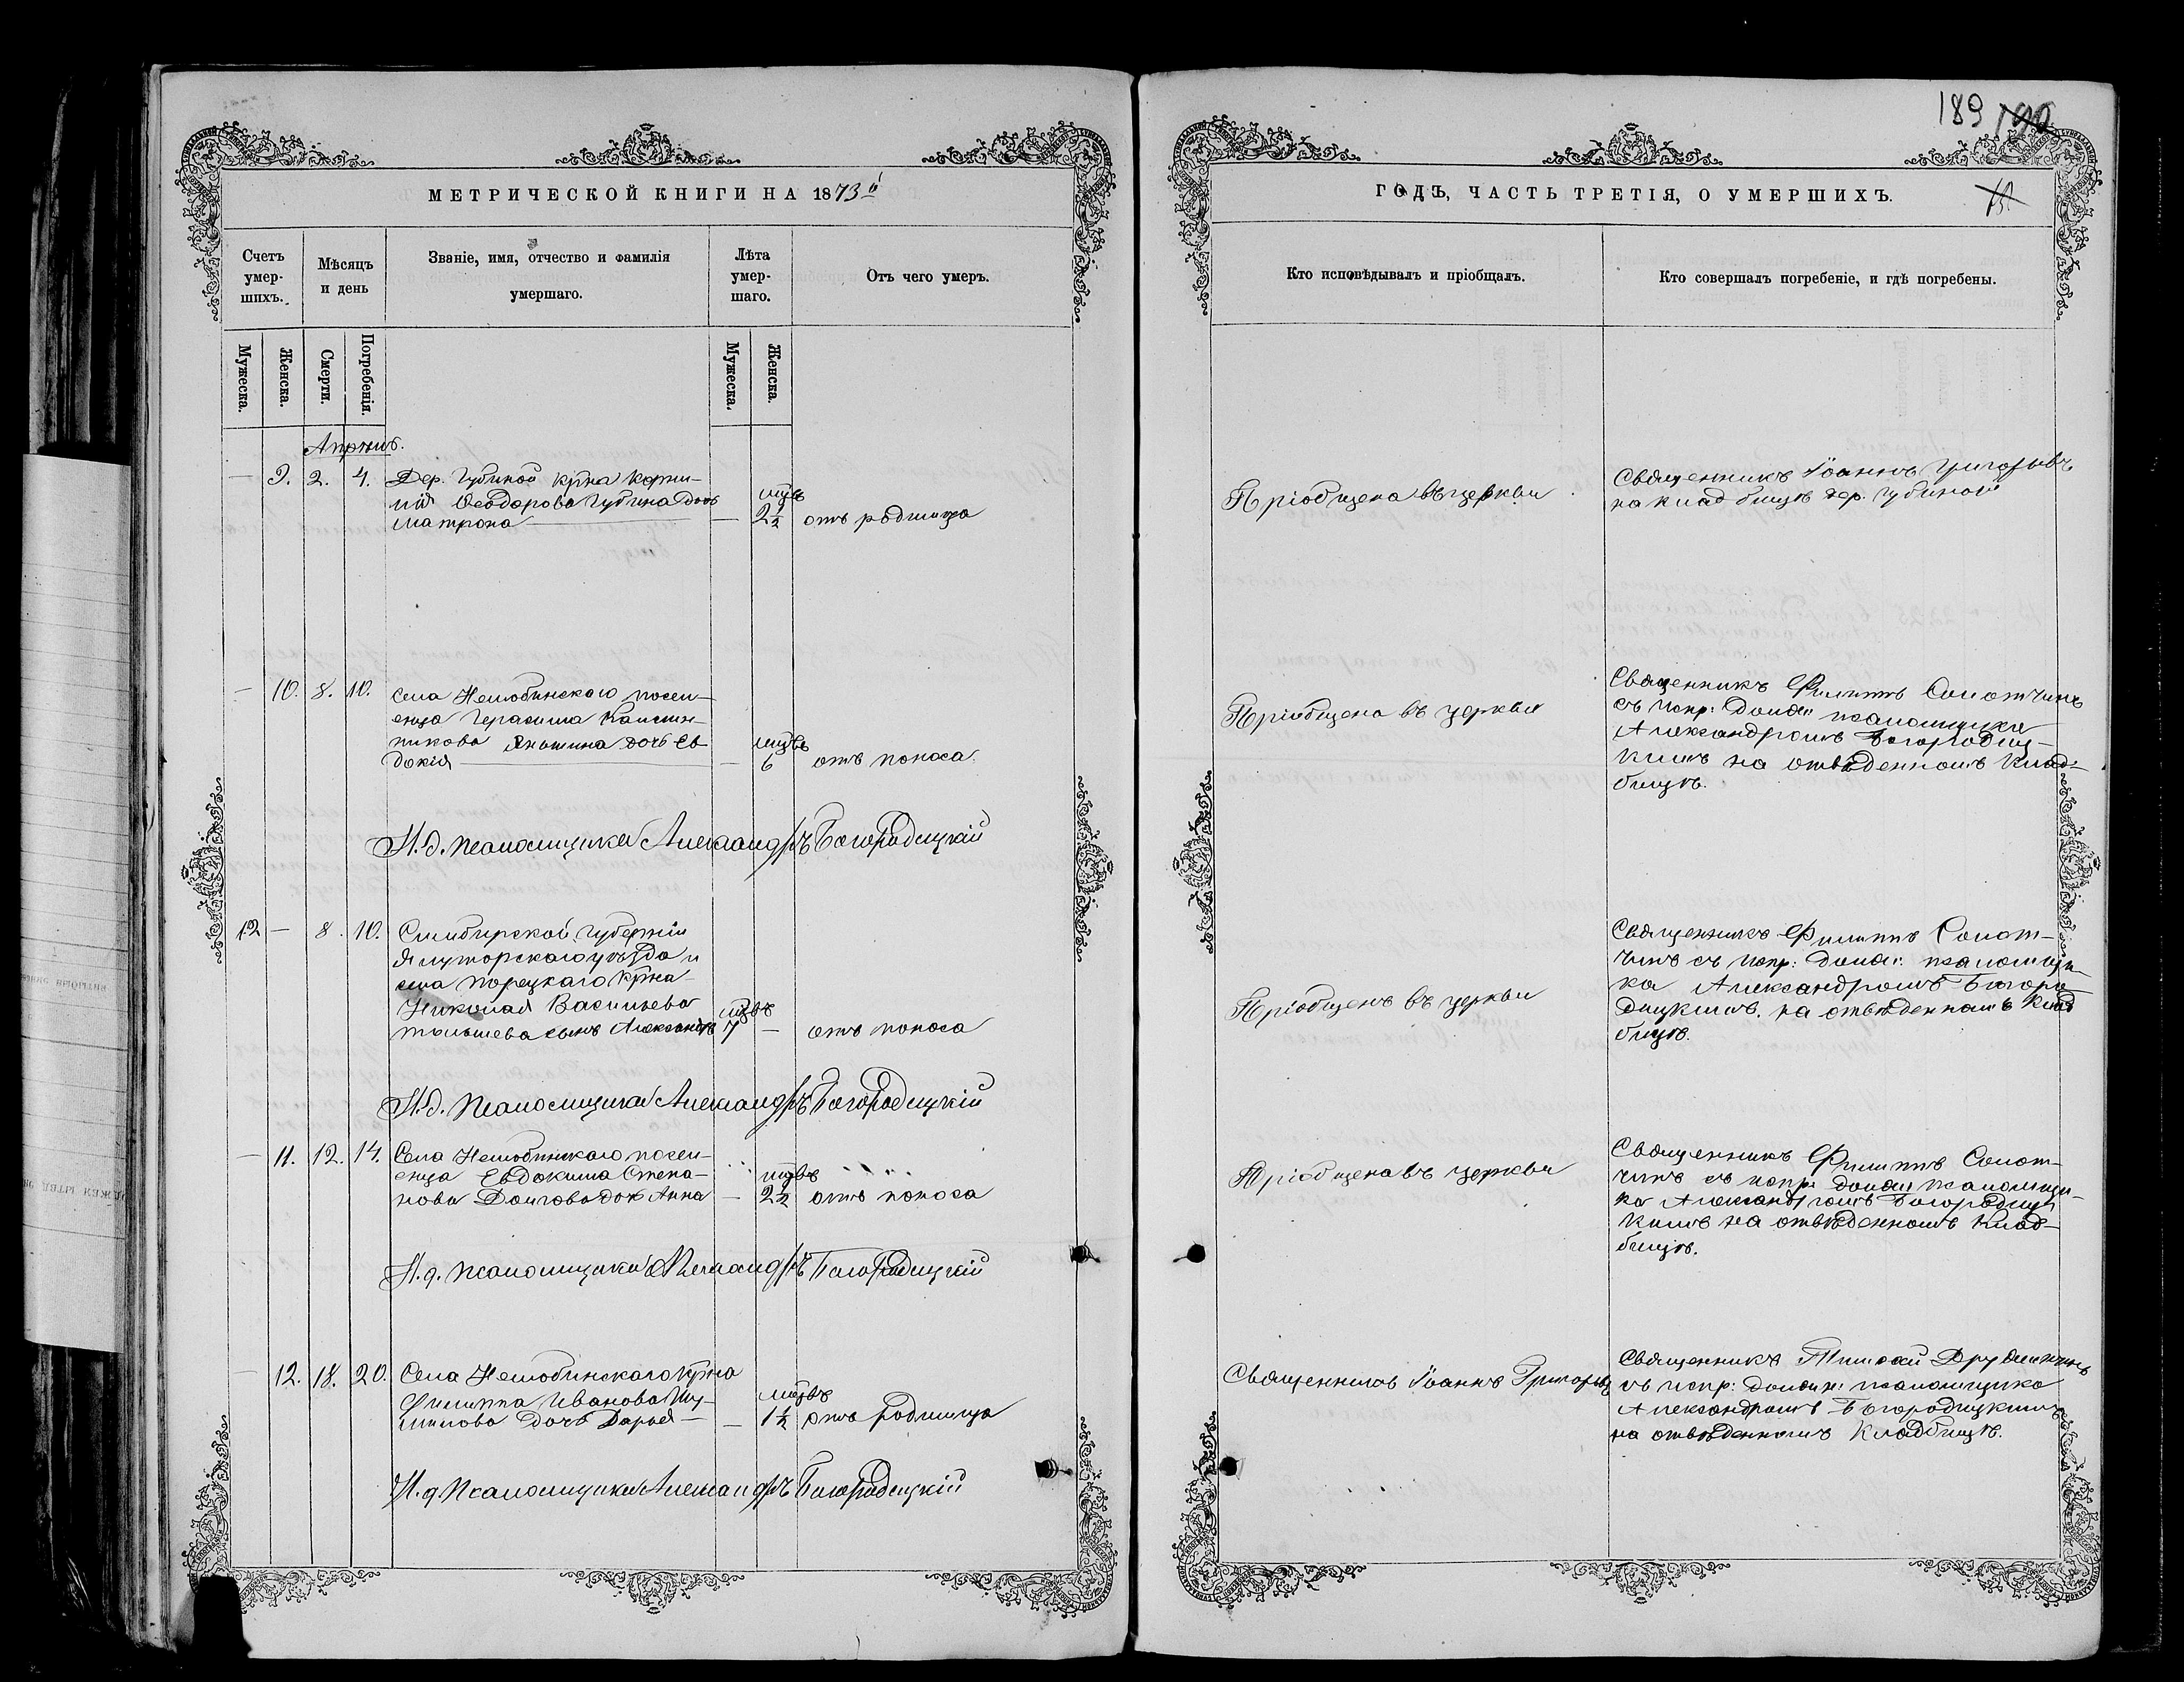 189
МЕТРИЧЕСКОЙ КНИГИ НА 1873й
ГОДЪ, ЧАСТЬ ТРЕТІЯ, О УМЕРШИХЪ.
Счетъ умер-
шихъ.
Мѣсяцъ
и день
Званіе, имя, отчество и фамилія
умершаго.
Лѣта
умер-
шаго.
Отъ чего умеръ.
Кто исповѣдывалъ и пріобщалъ.
Кто совершалъ погребеніе, и гдѣ погребены.
Мужеска.
Женска.
Смерти.
Погребенія.
Мужеска.
Женска.
Апрѣль.
9. 2. 4.
Дер. Губиной крна Корни-
лія Ѳеодорова Губина дочь
Матрона
мцвъ
2½
отъ родимца
Пріобщена въ церкви
Священникъ Іоаннъ Григорьевъ
на кладбищѣ дер. Губиной
10. 8. 10.
Села Нелюбинскаго посел-
енца Герасима
Яньшина дочь Ев-
докія
мцвъ
6
отъ поноса.
Пріобщена въ церкви
Священникъ Филиппъ Солотчинъ
съ испр: должн: псаломщика
Александромъ Богородиц-
кимъ на отвѣденномъ клад-
бищѣ.
И.д. псаломщика Александръ Богородицкій
12 8. 10.
Симбирской губерніи
уѣзда
села Порецкаго крна
Николая Васильева
сынъ Александръ
мцвъ
7
отъ поноса
Пріобщенъ въ церкви
Священникъ Филиппъ Солот-
чинъ съ испр: должн: псаломщи-
ка Александромъ Богоро-
дицкимъ. на отвѣденномъ клад
бищѣ.
И.д. псаломщика Александръ Богородицкій
11. 12. 14.
Села Нелюбинскаго посел-
енца Евдокима Степа-
нова Долгова дочь Анна
мцвъ
2½
отъ поноса
Пріобщена въ церкви
Священникъ Филиппъ Солот-
чинъ съ испр: должн: псаломщи-
ка Александромъ Богородиц-
кимъ на отвѣденномъ клад-
бищѣ.
И.д. псаломщика Александръ Богородицкій
12. 18. 20.
Села Нелюбинскаго крна
Филиппа Иванова Шу-
милова дочь Дарья
мцвъ
1½
отъ родимца
Священникъ Іоаннъ Григорьевъ
Священникъ
съ испр: должн: псаломщика
Александромъ Богородицкимъ
на отвѣденномъ кладбищѣ.
И.д. псаломщика Александръ Богородицкій